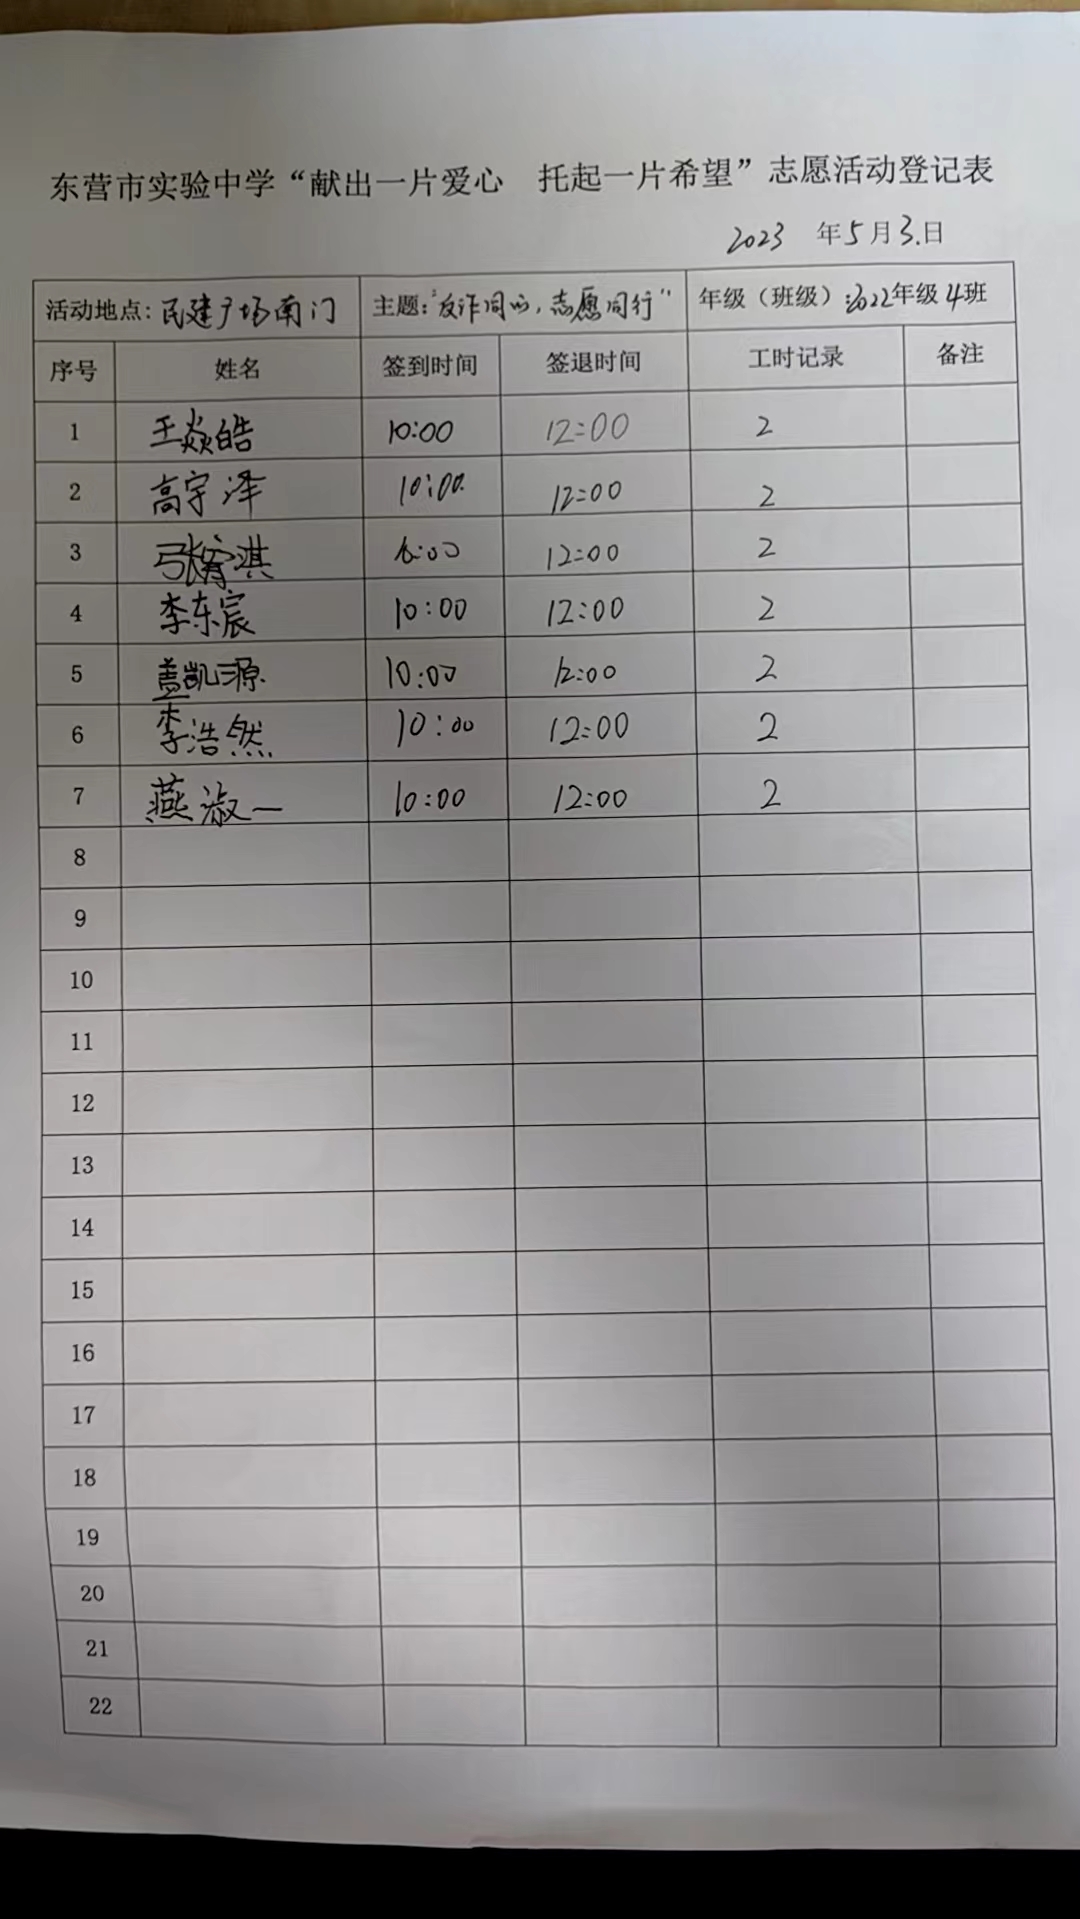 东营市实验中学“献出一片爱心 托起一片希望”志愿活动登记表
2023 年5月3日
活动地点:民建广场南门 主题:“反诈同心,志愿同行” 年级(班级):2022年级4班
序号 姓名 签到时间 签退时间 工时记录 备注
1 王焱皓 10:00 12:00 2
2 高宇泽 10:00 12:00 2
3 张宥淇 10:00 12:00 2
4 李东宸 10:00 12:00 2
5 盖凯源 10:00 12:00 2
6 李浩然 10:00 12:00 2
7 燕淑一 10:00 12:00 2
8
9
10
11
12
13
14
15
16
17
18
19
20
21
22